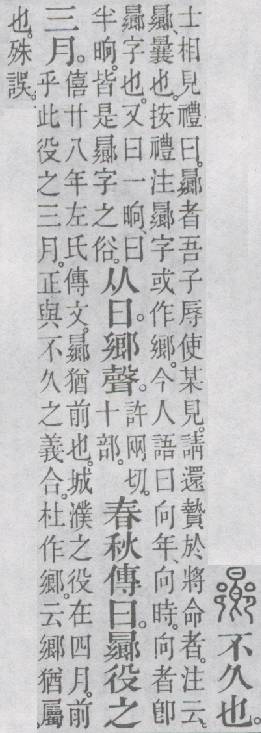 曏不久也。
士相見禮曰。曏者吾子辱使某見。請還贄於將命者。注云。
曏、曩也。按禮注曏字或作鄉。今人語曰向年、向時。向者卽
曏字也。又曰一晌、曰
半晌。皆是曏字之俗。
从日鄉聲。
許网切。
十部。
春秋傳曰。曏役之
三月。
僖廿八年左氏傳文。曏猶前也。城濮之役在四月。前
乎此役之三月。正與不久之義合。杜作鄉。云鄉猶屬
也。殊誤。